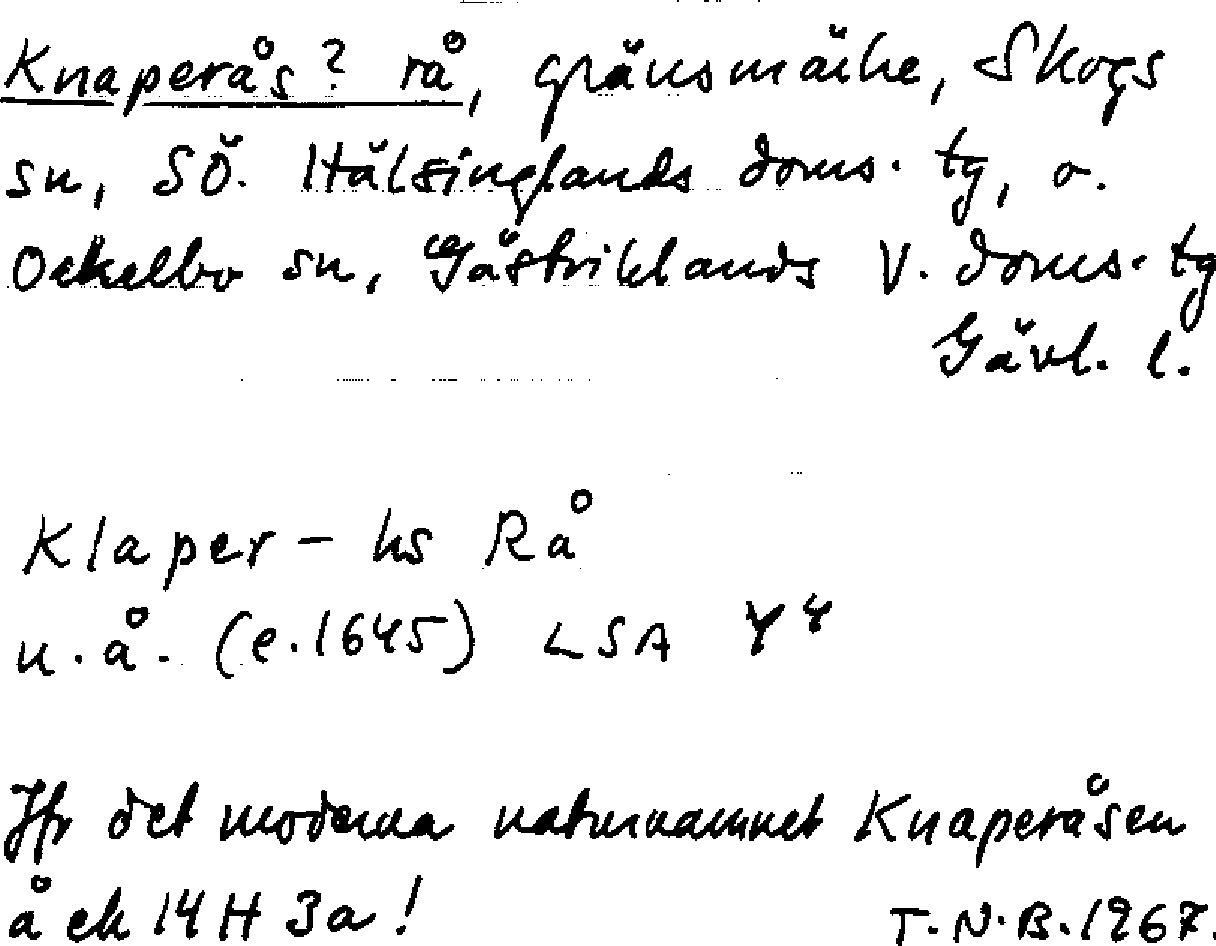 Knaperås? rå, gränsmärke, Skogs
sn, SÖ. Hälsinglands doms. tg, o.
Ockelbo sn, Gästriklands V. doms. tg
Gävl. l.
Klaper - hs Rå
u.å. (e. 1645) LSA Y4
Jfr det moderna naturnamnet Knaperåsen
å ek 14H 3a!
T.N.B. 1967.